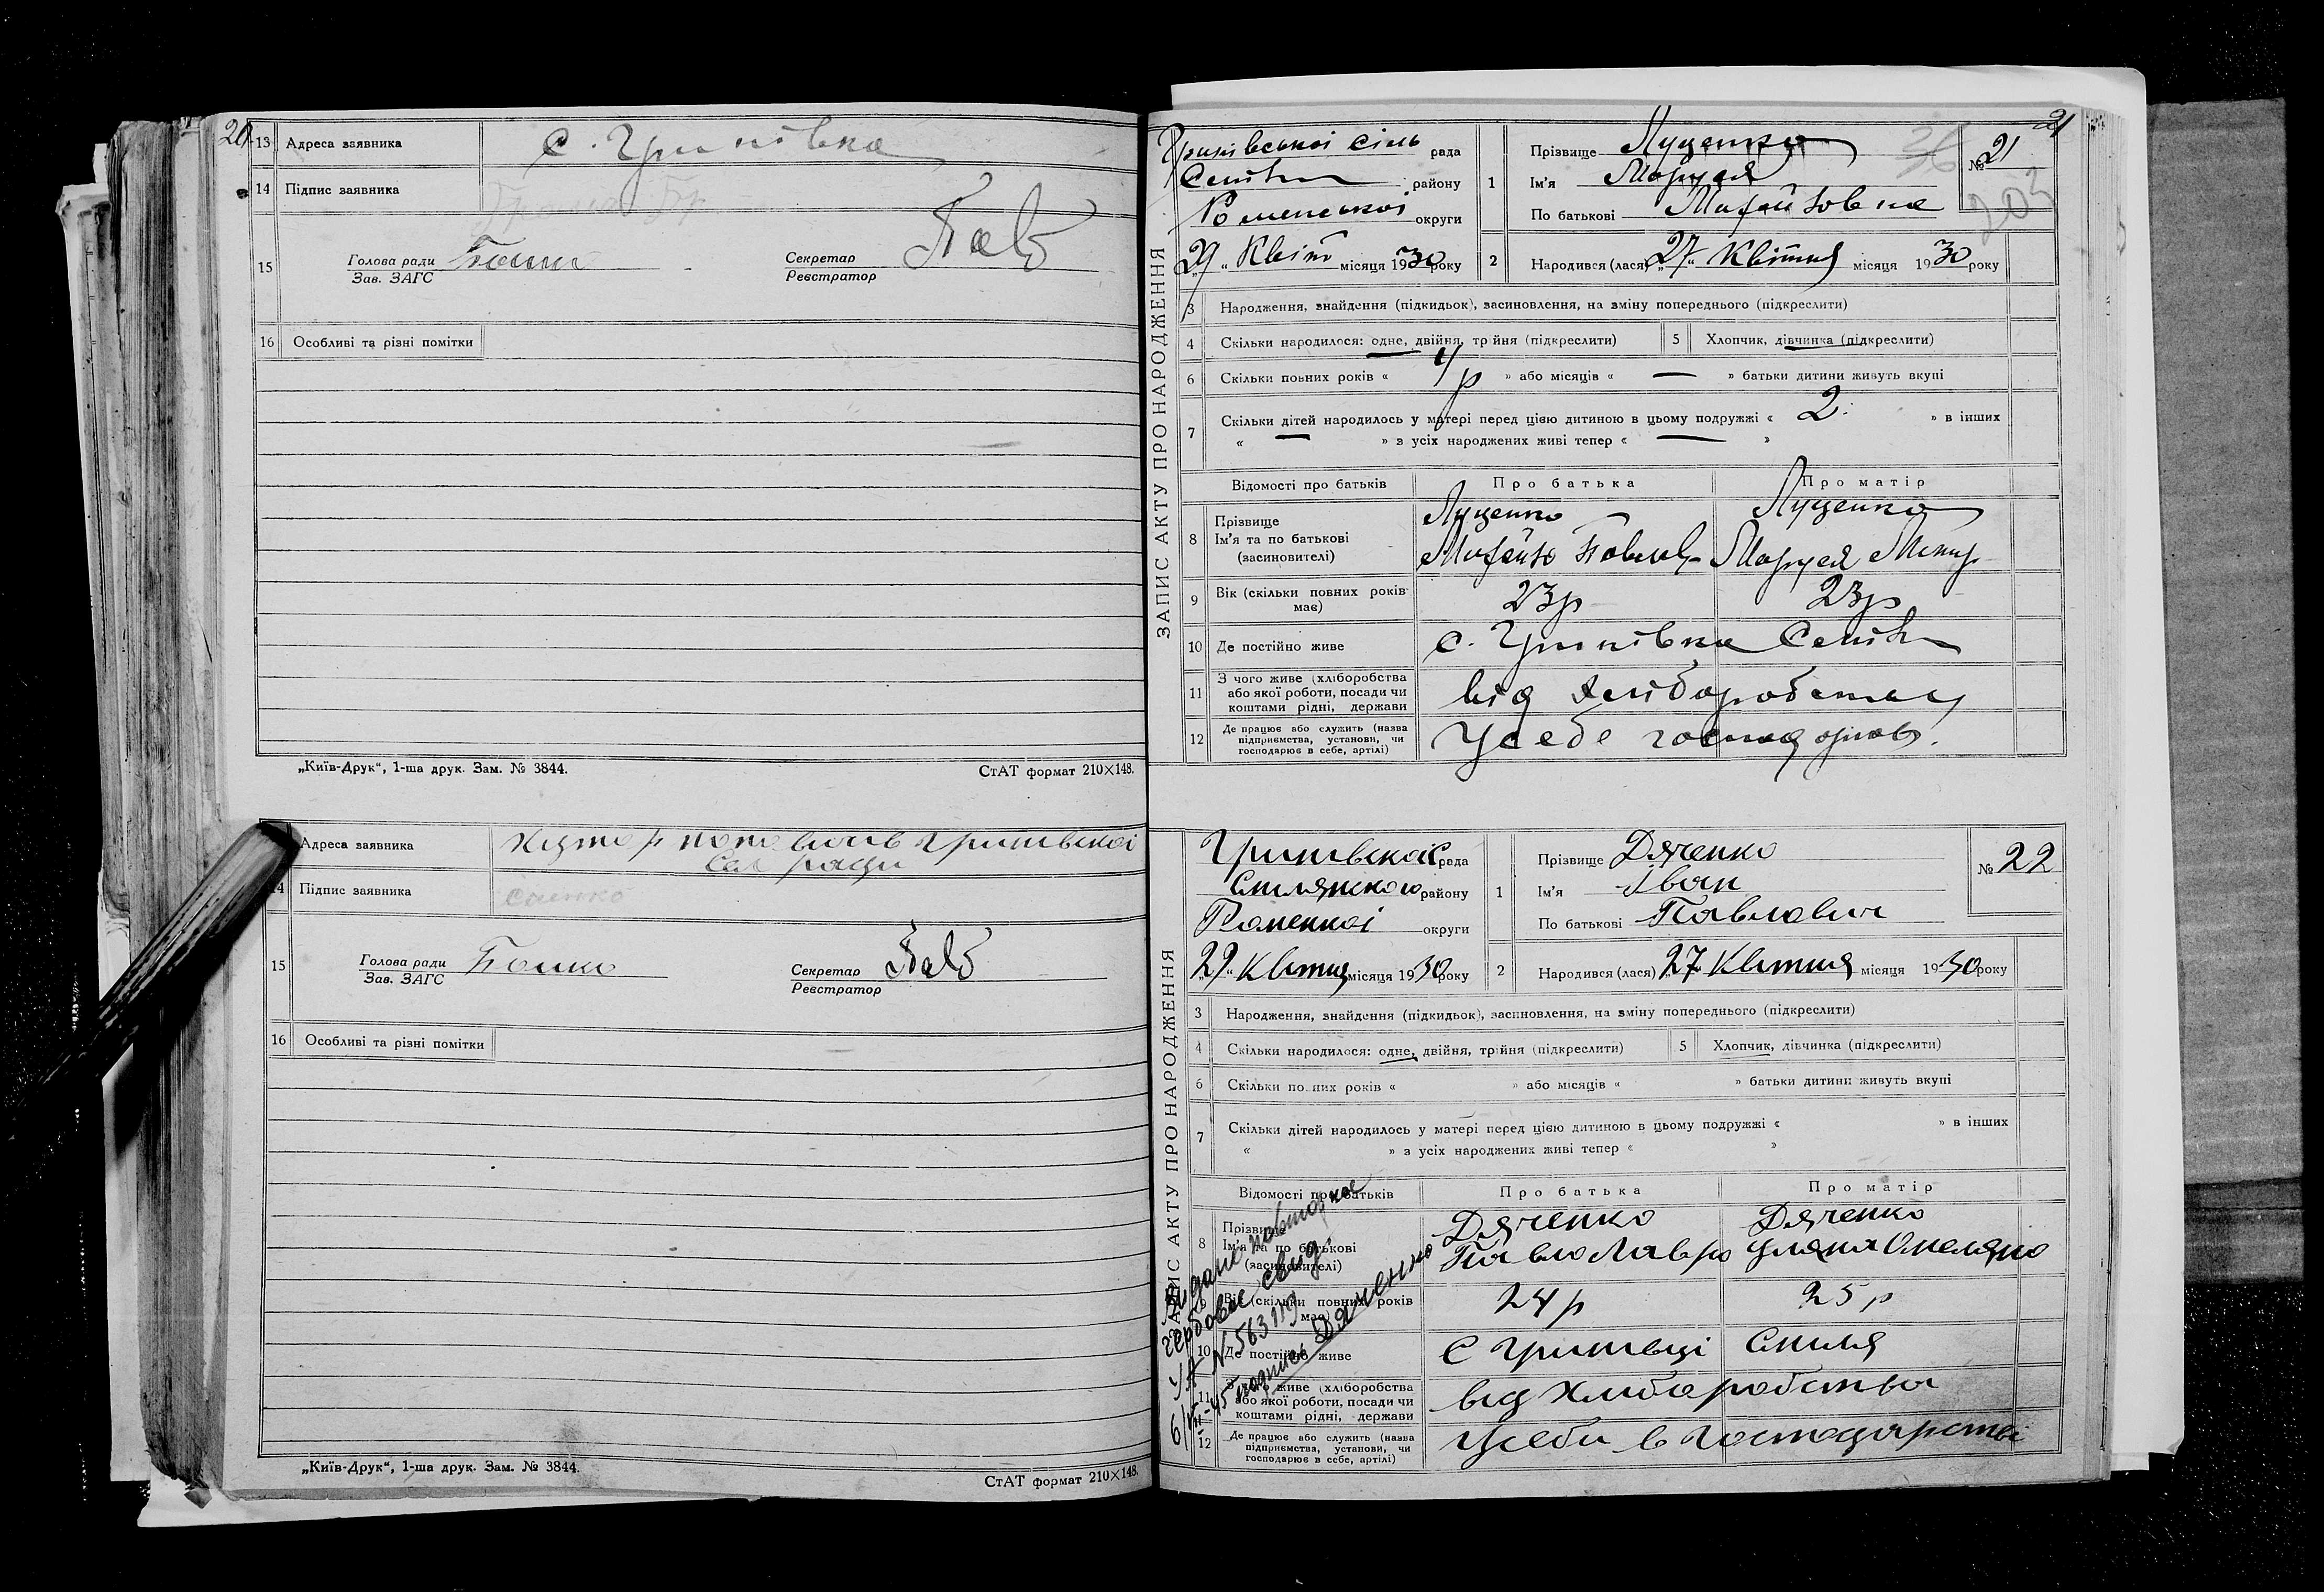 20
13 Адреса заявника с. Гринівка
14 Підпис заявника
15 Голова ради Бошко Секретар
Зав. ЗАГС Реєстратор
16 Особливі та різні помітки
„Київ-Друк“, 1-ша друк. Зам. № 3844. СтАТ формат 210×148.
Адреса заявника Хутор
сіл ради
14 Підпис заявника
15 Голова ради Бошко Секретар
Зав. ЗАГС Реєстратор
16 Особливі та різні помітки
„Київ-Друк“, 1-ша друк. Зам. № 3844. СтАТ формат 210×148.
21
ЗАПИС АКТУ ПРО НАРОДЖЕННЯ
сіль рада
району
Роменської округи
„29“ Квіт місяця 1930 року
1 Прізвище Луценко
Ім'я Маруся
По батькові Михайловна
36
№ 21
203
2 Народився (лася) „27“ Квітня місяця 1930 року
3 Народження, знайдення (підкидьок), засиновлення, на зміну попереднього (підкреслити)
4 Скільки народилося: одне, двійня, трійня (підкреслити) 5 Хлопчик, дівчинка (підкреслити)
6 Скільки повних років « 4 р » або місяців « — » батьки дитини живуть вкупі
7 Скільки дітей народилось у матері перед цією дитиною в цьому подружжі « 2 » в інших
« — » з усіх народжених живі тепер « — »
Відомості про батьків Про батька Про матір
8 Прізвище Луценко Луценко
Ім'я та по батькові Михайло Павлов Маруся
(засиновителі)
9 Вік (скільки повних років має) 23р 23р
10 Де постійно живе с. Гринівка
11 З чого живе (хліборобства
або якої роботи, посади чи
коштами рідні, держави від хліборобства
12 Де працює або служить (назва
підприємства, установи, чи
господарює в себе, артілі) У себе господарює.
ЗАПИС АКТУ ПРО НАРОДЖЕННЯ
рада
району
Роменкої округи
„29“ Квітня місяця 1930 року
1 Прізвище Дяченко
Ім'я Іван
По батькові Павлович
№ 22
2 Народився (лася) „27“ Квітня місяця 1930 року
3 Народження, знайдення (підкидьок), засиновлення, на зміну попереднього (підкреслити)
4 Скільки народилося: одне, двійня, трійня (підкреслити) 5 Хлопчик, дівчинка (підкреслити)
6 Скільки повних років « » або місяців « » батьки дитини живуть вкупі
7 Скільки дітей народилось у матері перед цією дитиною в цьому подружжі « » в інших
« » з усіх народжених живі тепер « »
Відомості про батьків Про батька Про матір
8 Прізвище Дяченко Дяченко
Ім'я та по батькові Павло Лавро Уляна Омеляно
(засиновителі)
9 Вік (скільки повних років має) 24 р 25 р
10 Де постійно живе с
11 З чого живе (хліборобства
або якої роботи, посади чи
коштами рідні, держави від хліборобства
12 Де працює або служить (назва
підприємства, установи, чи
господарює в себе, артілі) У себе в господарстві
повторное
гербовое свид.
N 563119
подпись Дяченко